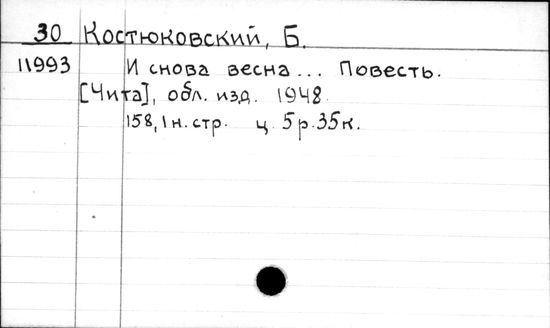 30 Костюковский, Б.
11993 И снова весна... Повесть.
[Чита], обл. изд. 1948.
158, 1 н. стр. ц. 5 р. 35 к.